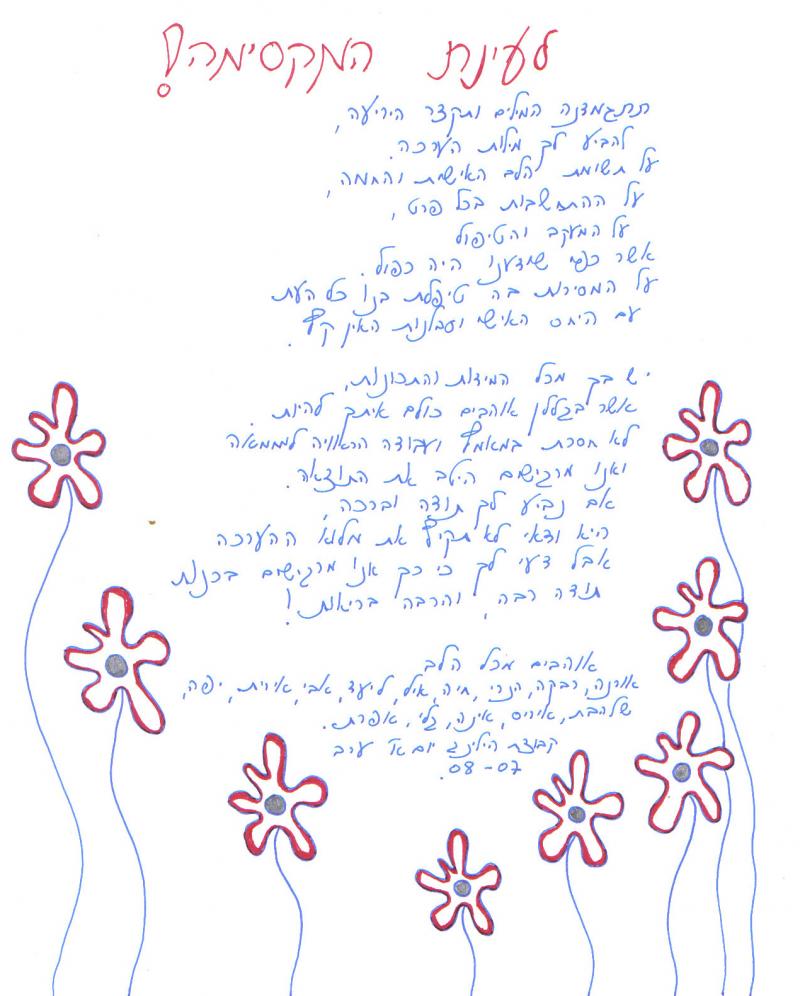 לעינת המקסימה!
תתגמדנה המילים ותקצר היריעה,
להביע לך מילות הערכה.
על תשומת הלב האישית והחמה,
על ההתחשבות בכל פרט,
על המעקב והטיפול
אשר כפי שידענו היה כפול.
על המסירות בה טיפלת בנו כל העת
עם היחס האישי וסבלנות האין קץ.
יש בך מכל המידות והתכונות,
אשר בגללן אוהבים כולם איתך להיות.
לא חסכת במאמץ ועבודה הראוויה לממצאה
ואנו מרגישים היטב את התוצאה.
אם נביע לך תודה וברכה,
היא ודאי לא תקיף את מלוא ההערכה
אבל דעי לך כי כך אנו מרגישים בכנות
תודה רבה, והרבה בריאות!
אוהבים מכל הלב
אורנה, רבקה, הנרי, חיה, אילן, ליעד, אבי, אירית, יפה,
שלהבת, איריס, אינה, גלי, אפרת.
קבוצת הילינג יום א' ערב
08-07.